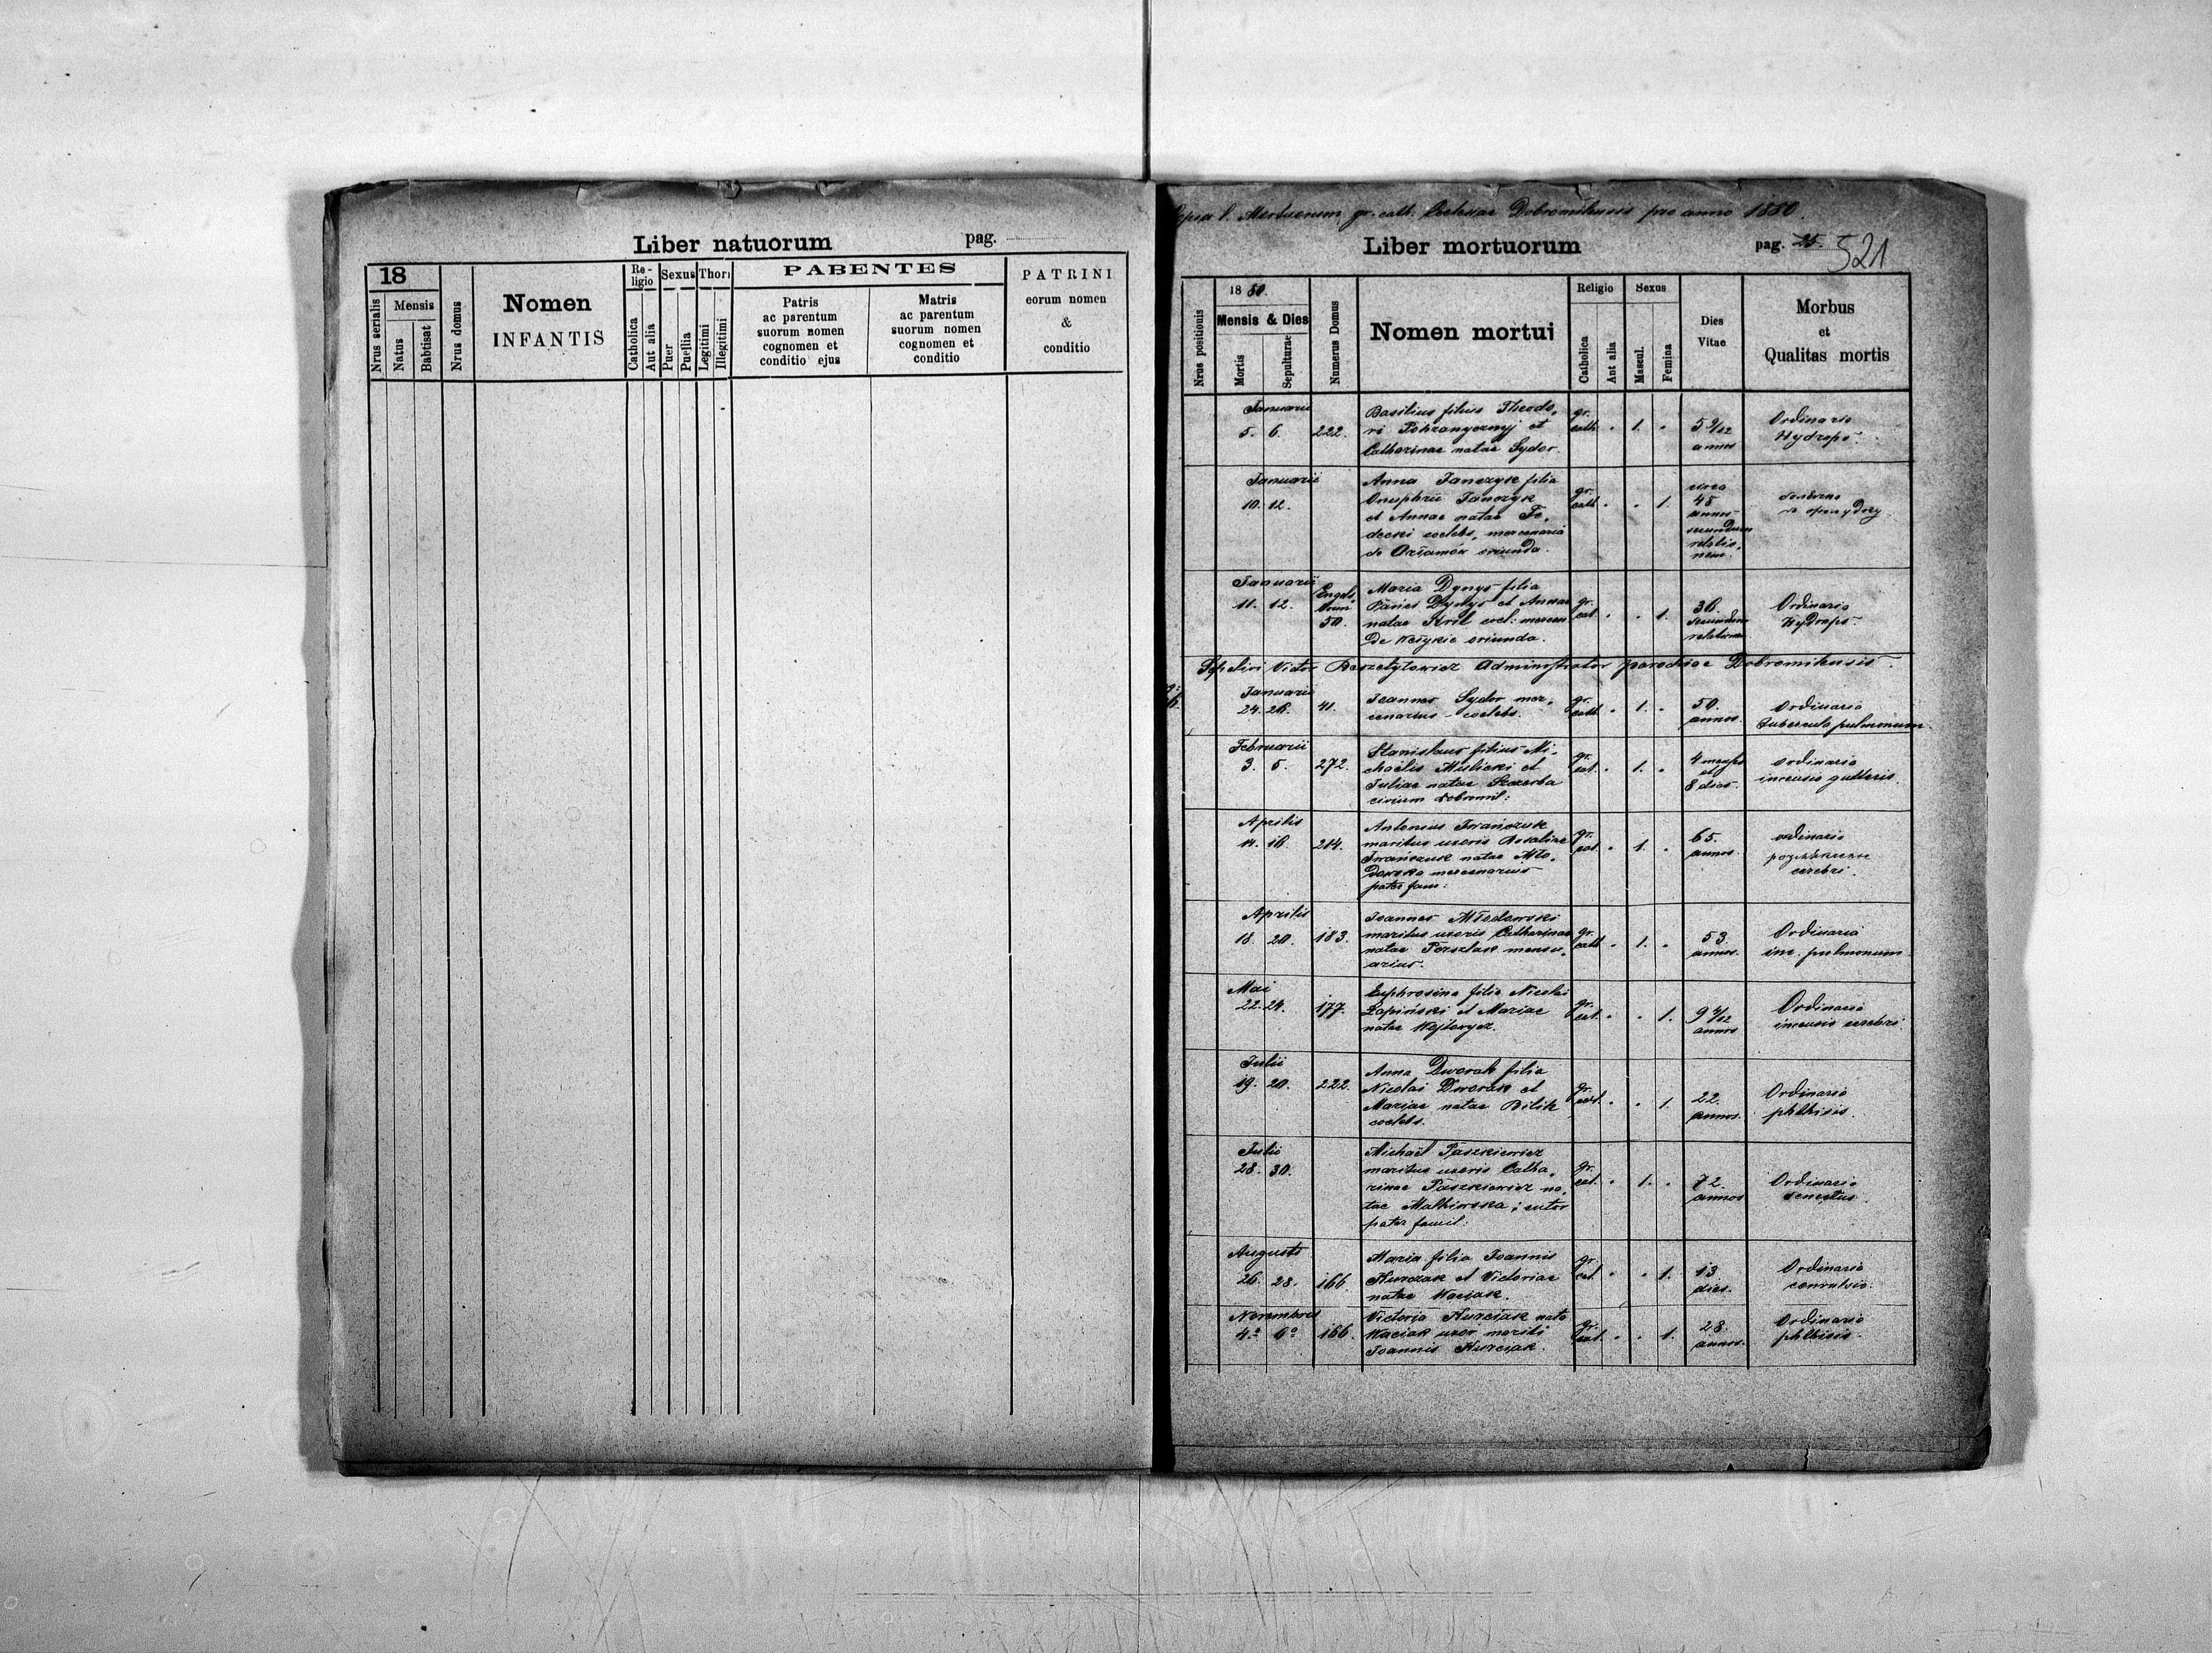 Liber natuorum pag.
18
Mensis
Nrus serialis
Natus
Babtisat
Nrus domus
Nomen
INFANTIS
Re-
ligio
Catholica
Aut alia
Sexus
Puer
Puellia
Thori
Legitimi
Illegitimi
PARENTES
Patris
ac parentum
suorum nomen
cognomen et
conditio ejus
Matris
ac parentum
suorum nomen
cognomen et
conditio
PATRINI
eorum nomen
&
conditio
Copia l. Mortuorum gr. cath. Ecclesiae Dobromilensis pro anno 1880.
Liber mortuorum pag. 25. 521
Nrus positionis
18 80.
Mensis & Dies
Mortis
Sepulturae
Numerus Domus
Nomen mortui
Religio
Catholica
Aut alia
Sexus
Mascul.
Femina
Dies
Vitae
Morbus
et
Qualitas mortis
Januarii
5. 6. 222.
Basilius filius Theodo,
ri Pohranycznyj et
Catharinae natae Sydor.
gr.
cath. 1.
5 9/12
annos
Ordinario
Hydrops.
Januarii
10. 12.
Anna Janczyk filia
Onuphrii Janczyk
et Annae natae Fe,
decki coelebs, mercenaria
de oriunda.
gr.
cath. 1.
circa
48
annos
secundum
relatio,
nem.
Januarii
11. 12.
Engels,
brun
50.
Maria Dynys filia
Dynys et Annae
natae Kril coel: mercen
De oriunda.
gr.
cat. 1.
36.
secundum
relationem
Ordinario
Hydrops.
Sepelivi Victor Administrator parochiae Dobromilensis.
Januarii
24. 26. 41.
Joannes Sydor mer,
cenarius - coelebs.
gr.
cath. 1.
50.
annos.
Ordinario
tubercula pulmonum.
Februarii
3. 5. 272.
Stanislaus filius Mi,
chaelis Mislicki et
Juliae natae Szczerba
civium dobromil:
gr.
cat. 1.
4 menses
et
8 dies.
ordinario
incensio gutturis.
Aprilis
14. 16. 284.
Antonius Iwańczuk
maritus uxoris Rosaliae
Iwańczuk natae Mło,
dowska mercenarius
pater fam:
gr.
cat. 1.
65.
annos.
ordinario
cerebri.
Aprilis
18. 20. 183.
Joannes Młodowski
maritus uxoris Catharinae
natae
arius.
gr.
cath. 1.
53.
annos.
Ordinario
inc. pulmonum.
Mai
22. 24. 177.
Euphrosina filia Nicolai
Łapiński et Mariae
natae Wojtowycz.
gr.
cat. 1.
9 4/12
annos
Ordinario
incensio cerebri.
Julii
19. 20. 222.
Anna Dworak filia
Nicolai Dworak et
Mariae natae Bilik
coelebs.
gr.
cat. 1.
22.
annos.
Ordinario
phthisis.
Julio
28. 30.
Michaël Paszkiewicz
maritus uxoris Catha,
rinae Paszkiewicz na,
tae Malhiwska; sutor
pater famil:
gr.
cat. 1.
72.
annos
Ordinario
senectus.
Augusti
26. 28. 166.
Maria filia Joannis
Kurczak et Victoriae
natae Waciak.
gr.
cat. 1.
13
dies.
Ordinario
convulsio.
Novembris
4º 6º 166.
Victoria Kurciak nata
Waciak uxor mariti
Joannis Kurciak.
gr.
cat. 1.
28.
annos.
Ordinario
phthisis.